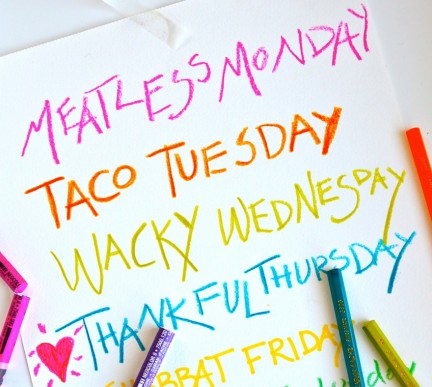 MEATLESS MONDAY
TACO TUESDAY
WACKY WEDNESDAY
THANKFUL THURSDAY
FRIDAY